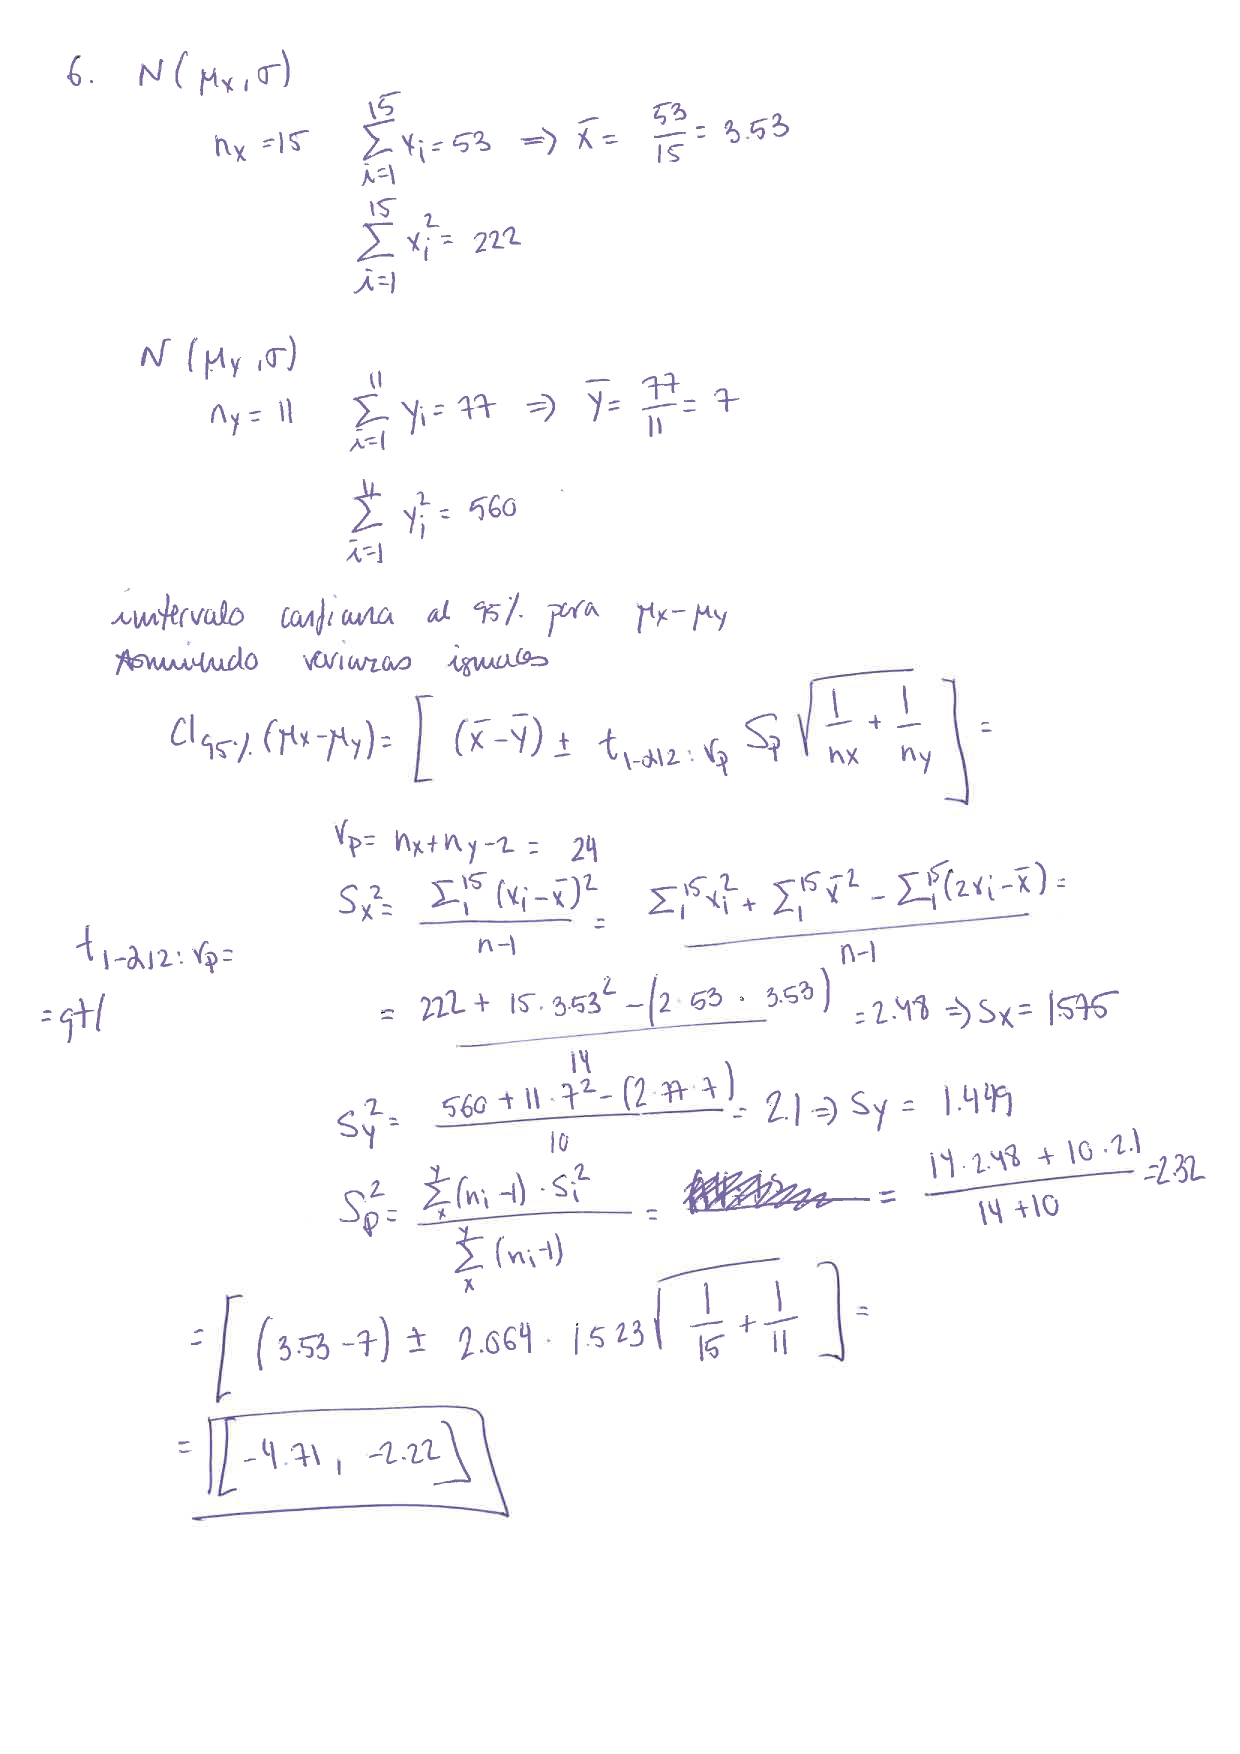 6. N(μx, σ)
nx = 15 ∑_{i=1}^{15} xi = 53 ⇒ x̄ = 53/15 = 3.53
∑_{i=1}^{15} xi² = 222
N(μy, σ)
ny = 11 ∑_{i=1}^{11} yi = 77 ⇒ ȳ = 77/11 = 7
∑_{i=1}^{11} yi² = 560
intervalo confiana al 95% para μx-μy
Asumiendo varianzas iguales
CI95% (μx-μy) = [(x̄-ȳ) ± t1-α/2: νp Sp √(1/nx + 1/ny)] =
νp = nx+ny-2 = 24
Sx² = ∑₁¹⁵(xi-x̄)² / n-1 = ∑₁¹⁵xi² + ∑₁¹⁵x̄² - ∑₁¹⁵(2xi-x̄) / n-1 =
t1-α/2: νp =
= qt(
= 222 + 15·3.53² - (2·53·3.53) / 14 = 2.48 ⇒ Sx = 1.575
Sy² = 560 + 11·7² - (2·77·7) / 10 = 2.1 ⇒ Sy = 1.449
Sp² = ∑_x^y(ni-1)·Si² / ∑_x^y(ni-1) = = 14·2.48 + 10·2.1 / 14+10 = 2.32
= [(3.53-7) ± 2.064 · 1.523 √(1/15 + 1/11)] =
= [-4.71, -2.22]